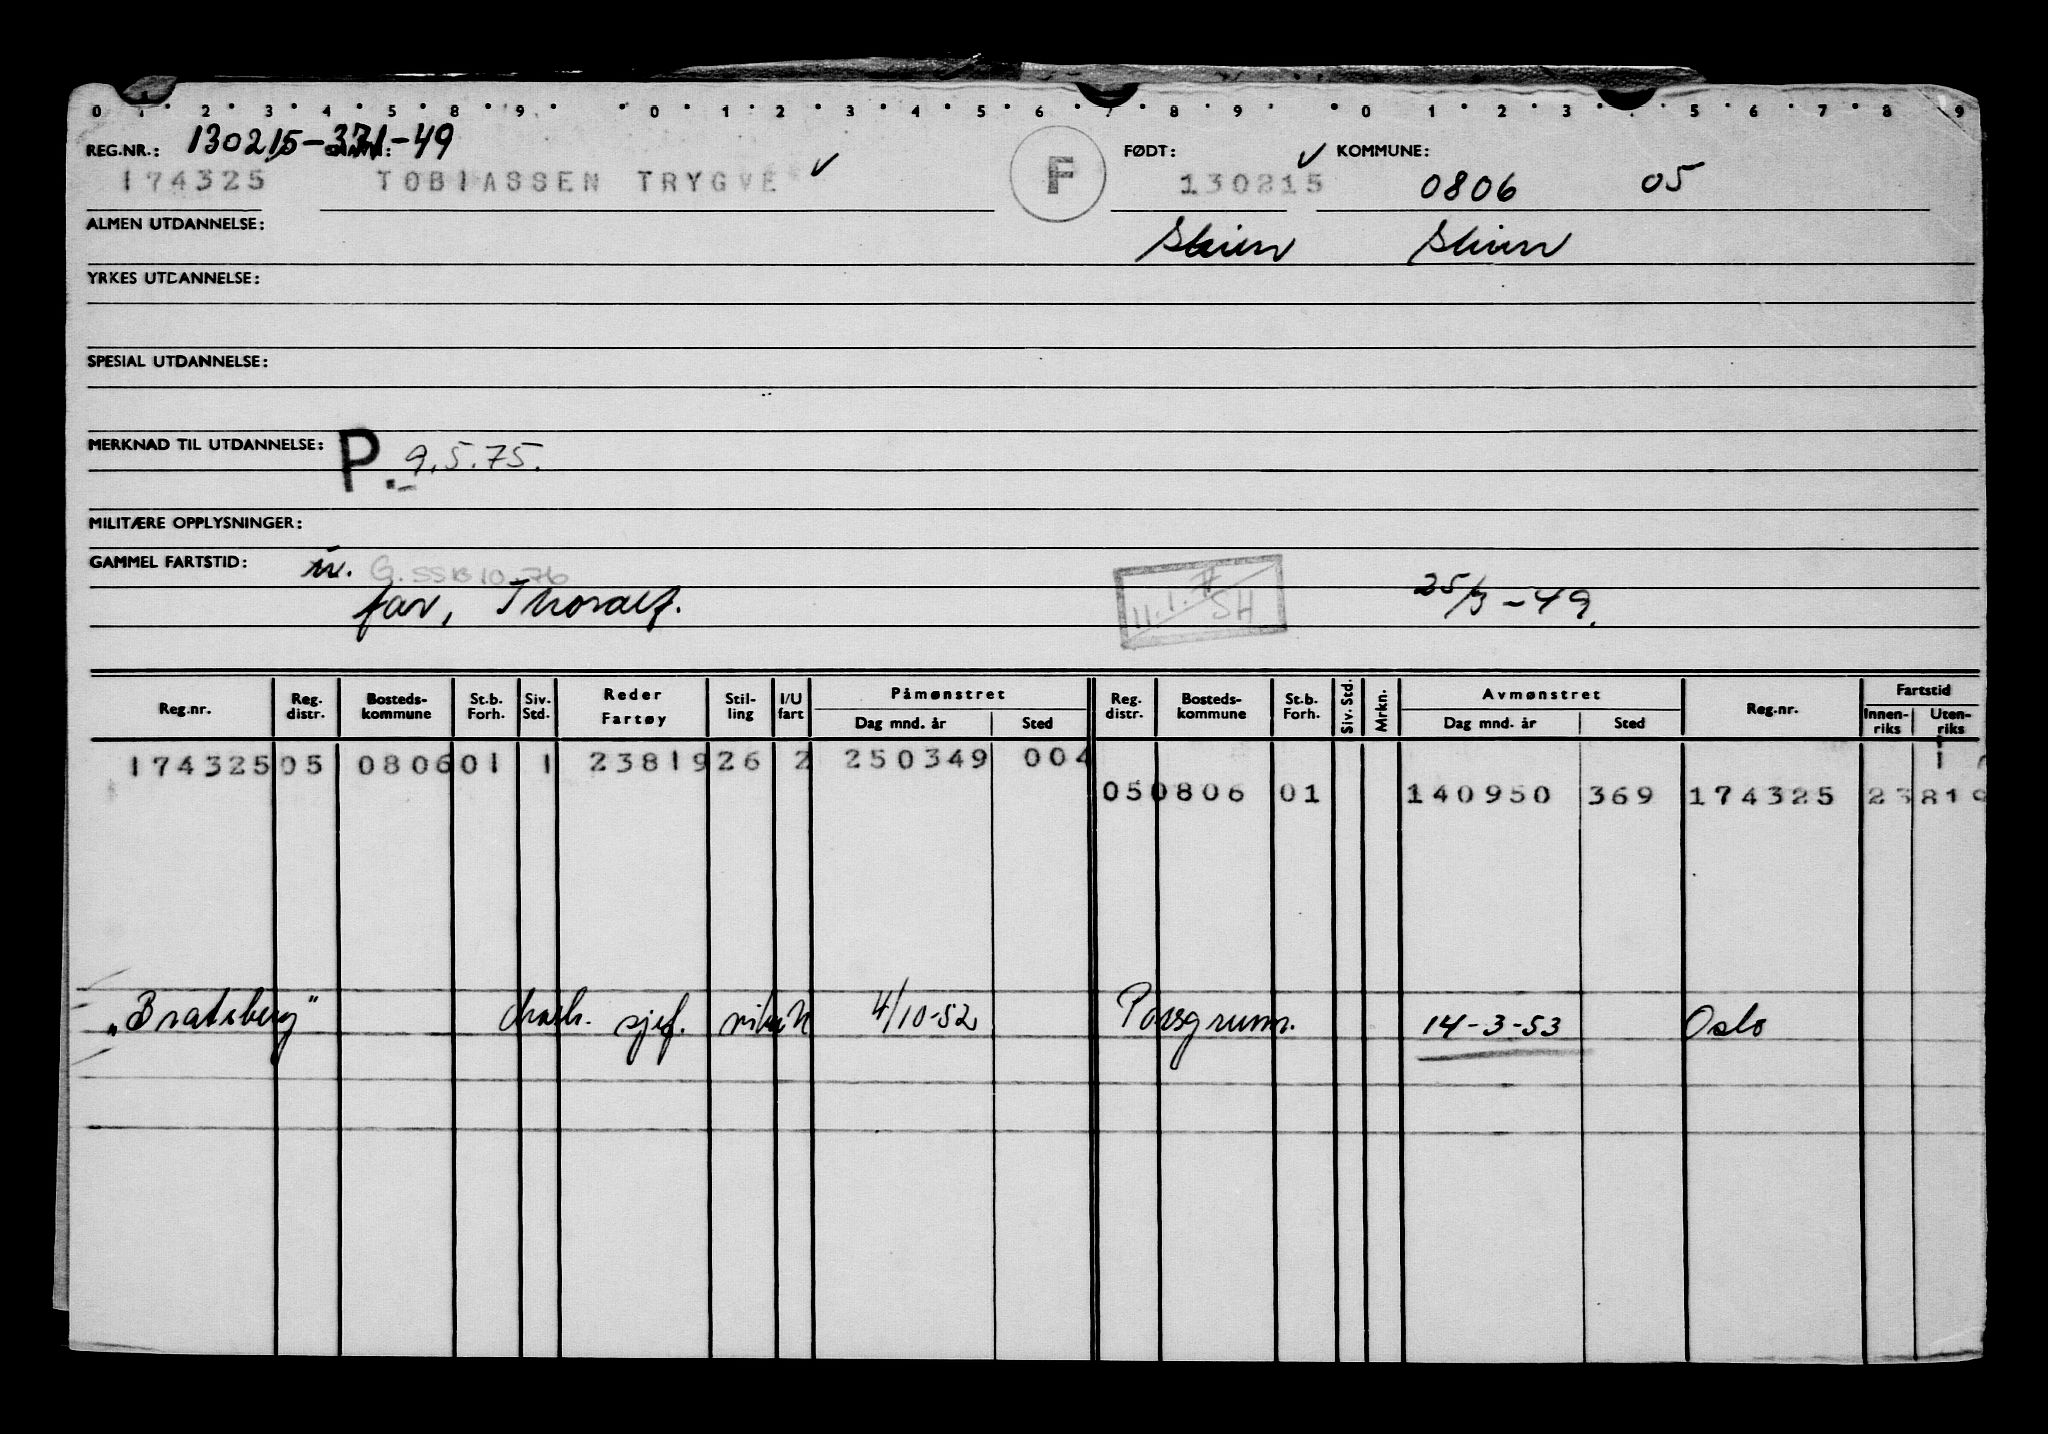 0 1 2 3 4 5 8 9 0 1 2 3 4 5 6 7 8 9 0 1 2 3 5 6 7 8 9
REG.NR.: 130215-371-49 FØDT: KOMMUNE:
174325 TOBIASSEN TRYGVE ✓ F 130215 ✓ 0806 05
ALMEN UTDANNELSE: Skien Skien
YRKES UTDANNELSE:
SPESIAL UTDANNELSE:
MERKNAD TIL UTDANNELSE: P. 9.5.75.
MILITÆRE OPPLYSNINGER:
GAMMEL FARTSTID: G. SSB 10-76
far, Thoralf. SH 25/3-49.
Reg.nr. Reg. distr. Bosteds-kommune St.b. Forh. Siv. Std. Reder Fartøy Stil-ling I/U fart Påmønstret Dag mnd. år Sted Reg. distr. Bosteds-kommune St.b. Forh. Siv. Std. Mrkn. Avmønstret Dag mnd. år Sted Reg.nr. Fartstid Innen-riks Uten-riks
174325 05 0806 01 1 23819 26 2 250349 004
05 0806 01 140950 369 174325 23819
"Bratsberg" sjef. 4/10-52 Porsgrunn. 14-3-53 Oslo